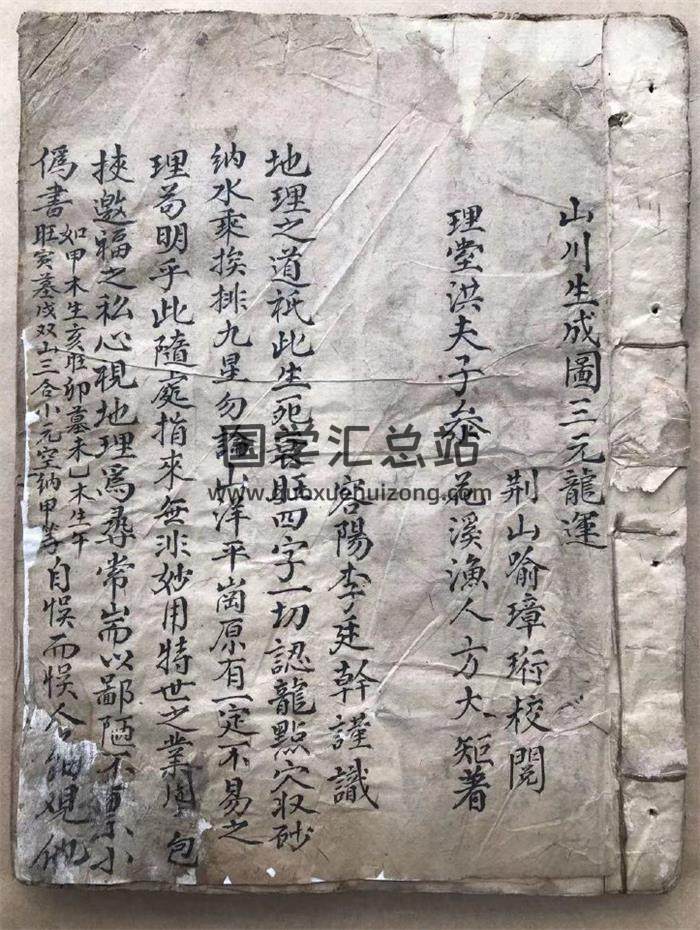 山川生成圖三元龍運
荆山喻璋珩校閱
理堂洪夫子叅 花溪漁人方大矩著
容陽李廷幹謹識
地理之道祇此生死衰旺四字一切認龍點穴収砂
纳水乘挨排九星勿論山洋平崗原有一定不易之
理苟明乎此隨處指來無非妙用特世之業 包
挾邀福之私心視地理爲尋常耑以鄙陋不 小
僞書
如甲木生亥旺卯墓未乙木生午
旺寅墓戌双山三合小元空纳甲等
自悮而悮人 觀他
国学汇总站
www.guoxuehuizong.com